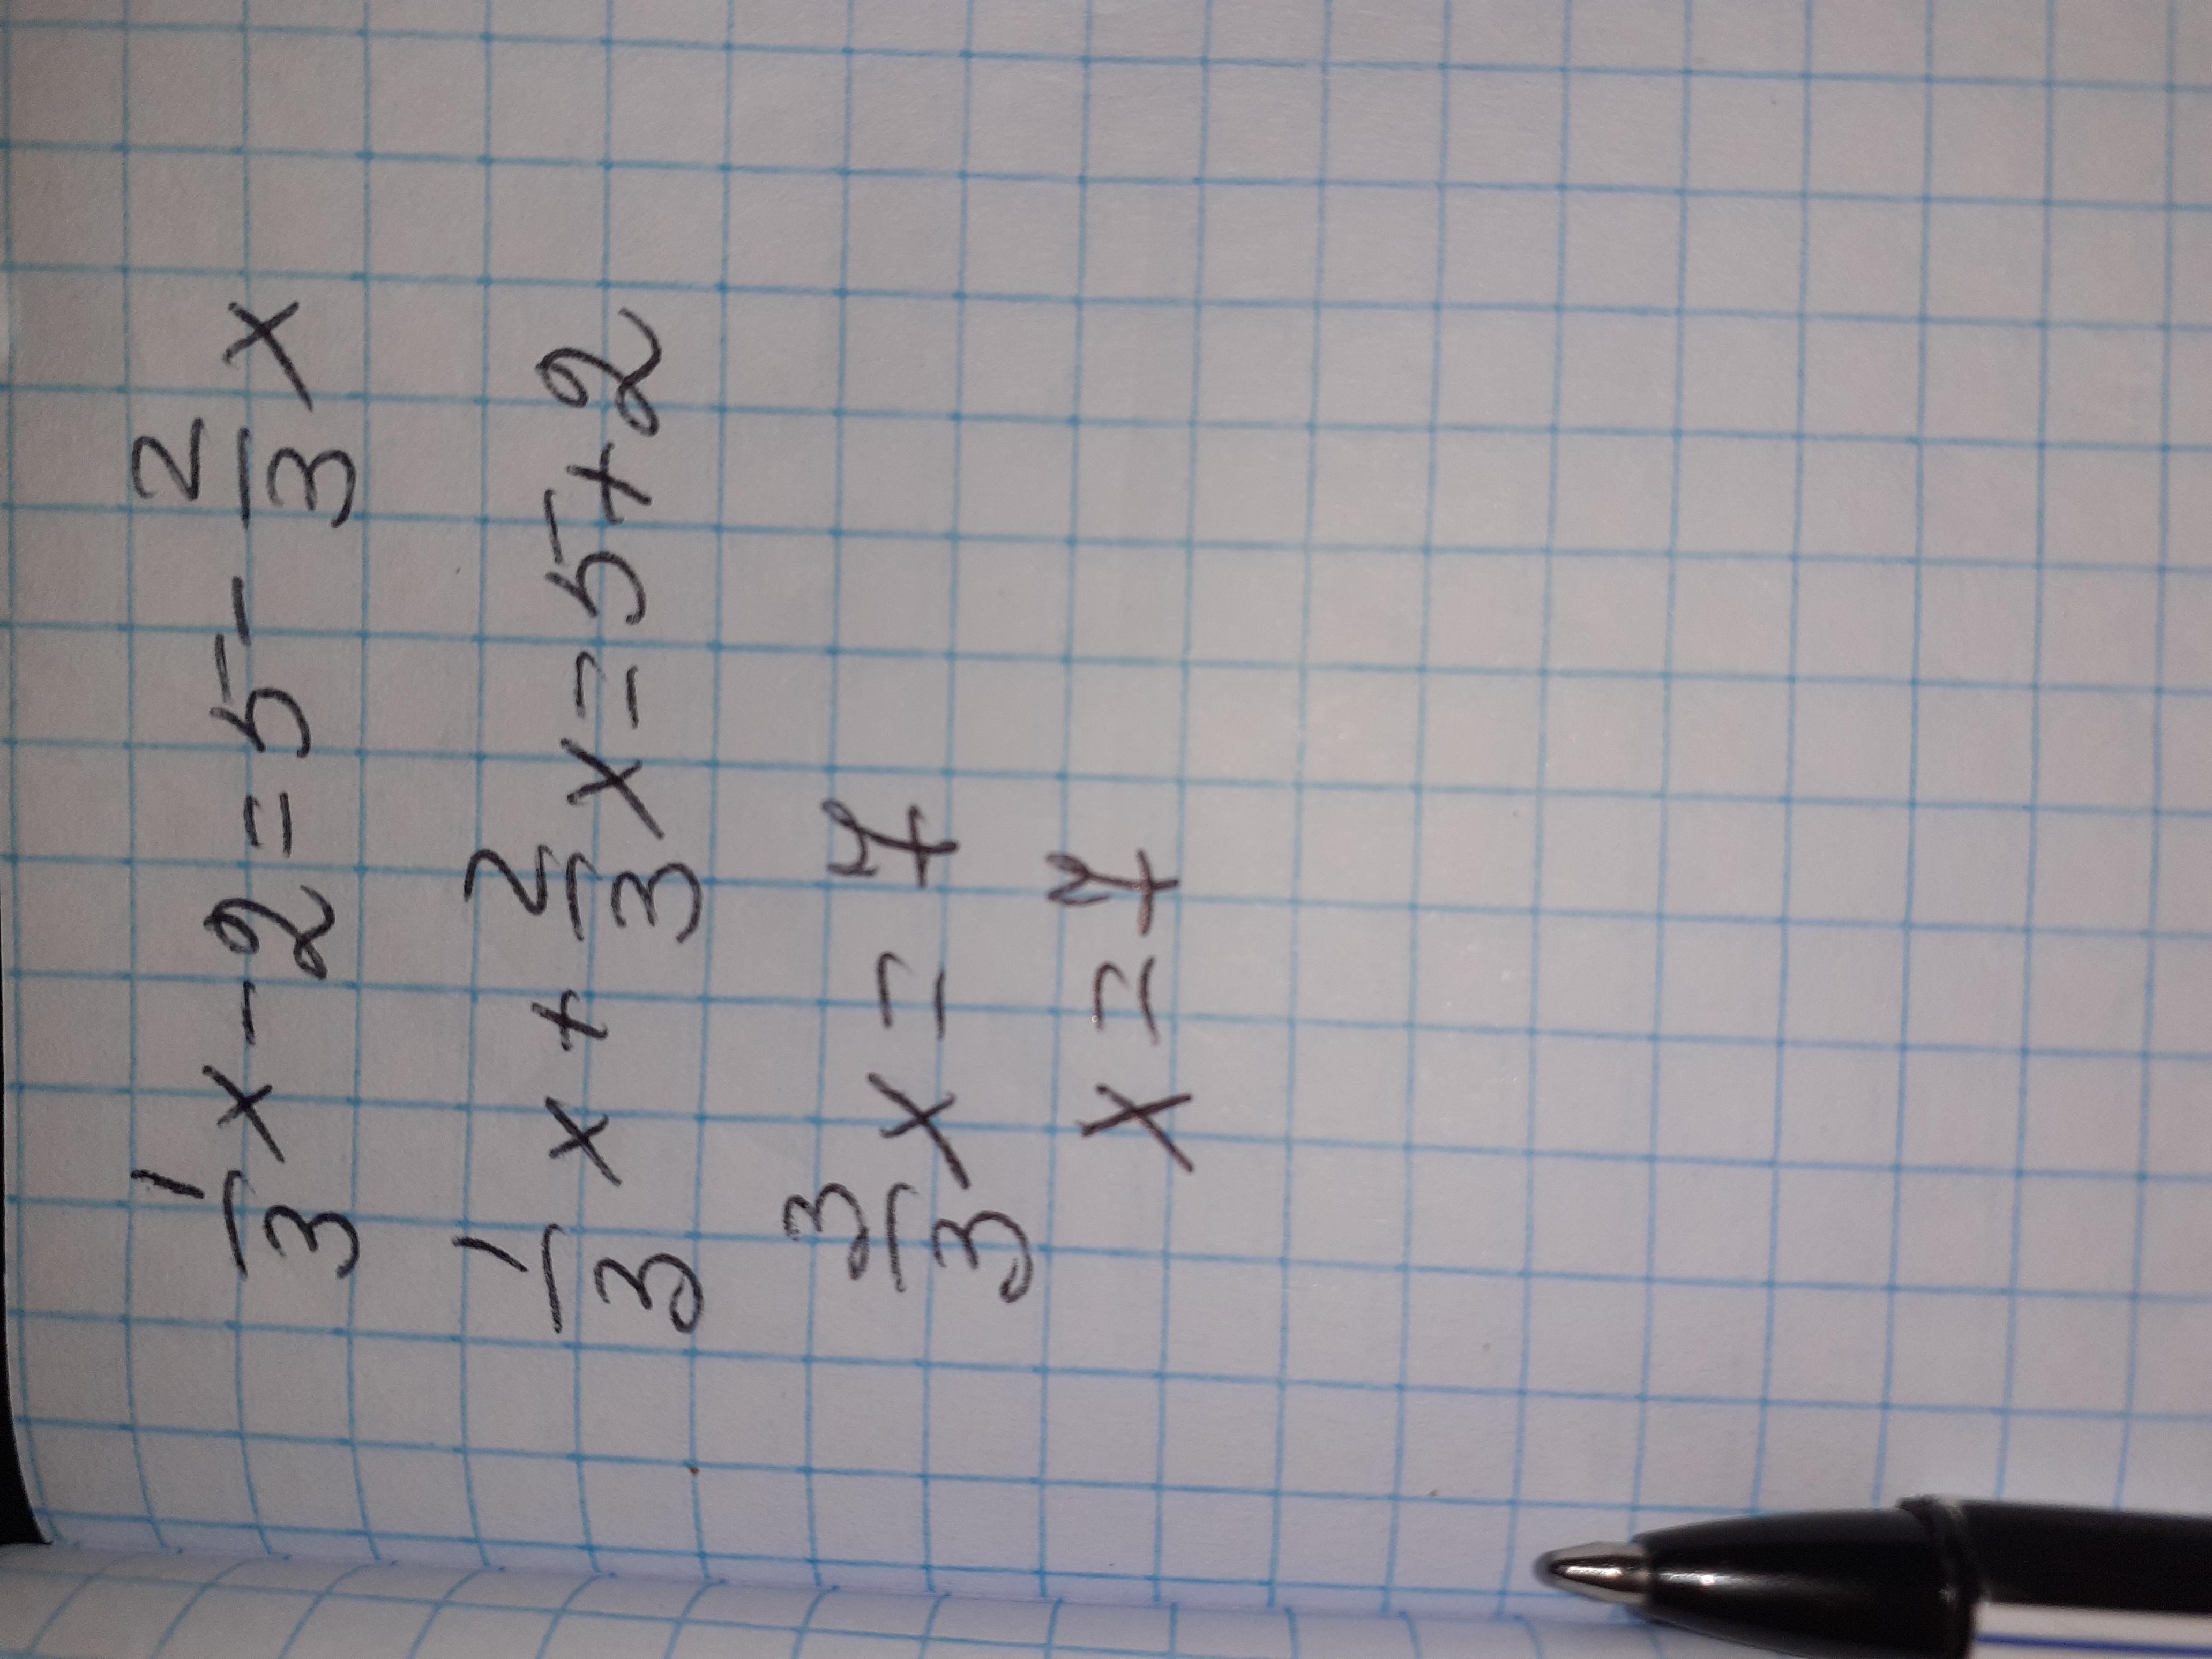 1/3 x - 2 = 5 - 2/3 x
1/3 x + 2/3 x = 5 + 2
3/3 x = 7
x = 7